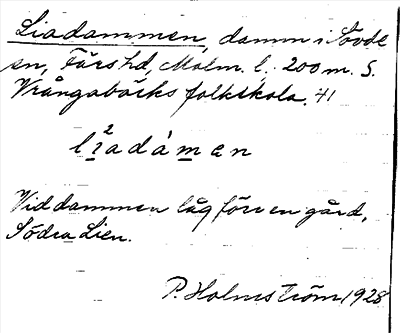 Liadammen, damm i Sövde
sn, Färs hd, Malm. l. 200 m. S.
Vrångabäcks folkskola. 41
lìadámen
Vid dammen låg förr en gård,
Södra Lien.
P. Holmström 1928